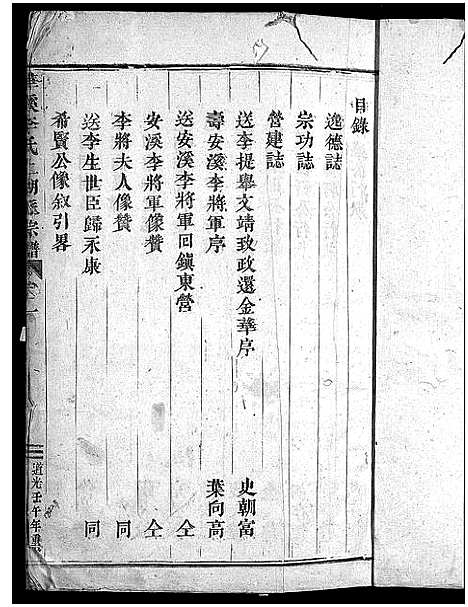 目錄
逸德誌
宗功誌
營建誌
送李提舉文靖致政還金華序 史朝富
壽安溪李將軍序 葉向高
送安溪李將軍回鎮東營 仝
安溪李將軍像贊 仝
李將夫人像贊 同
送李生世臣歸永康 同
希賢公像叙引畧
華溪李氏上湖派宗譜 卷一
道光壬午年重